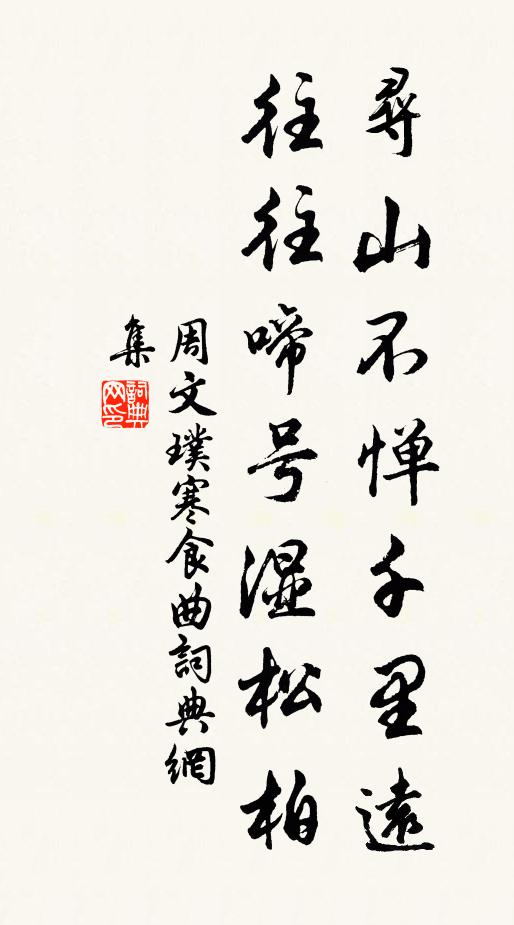 尋山不惮千里遠
往往啼号湿松柏
周文璞寒食曲詞典網
集
詞典網印